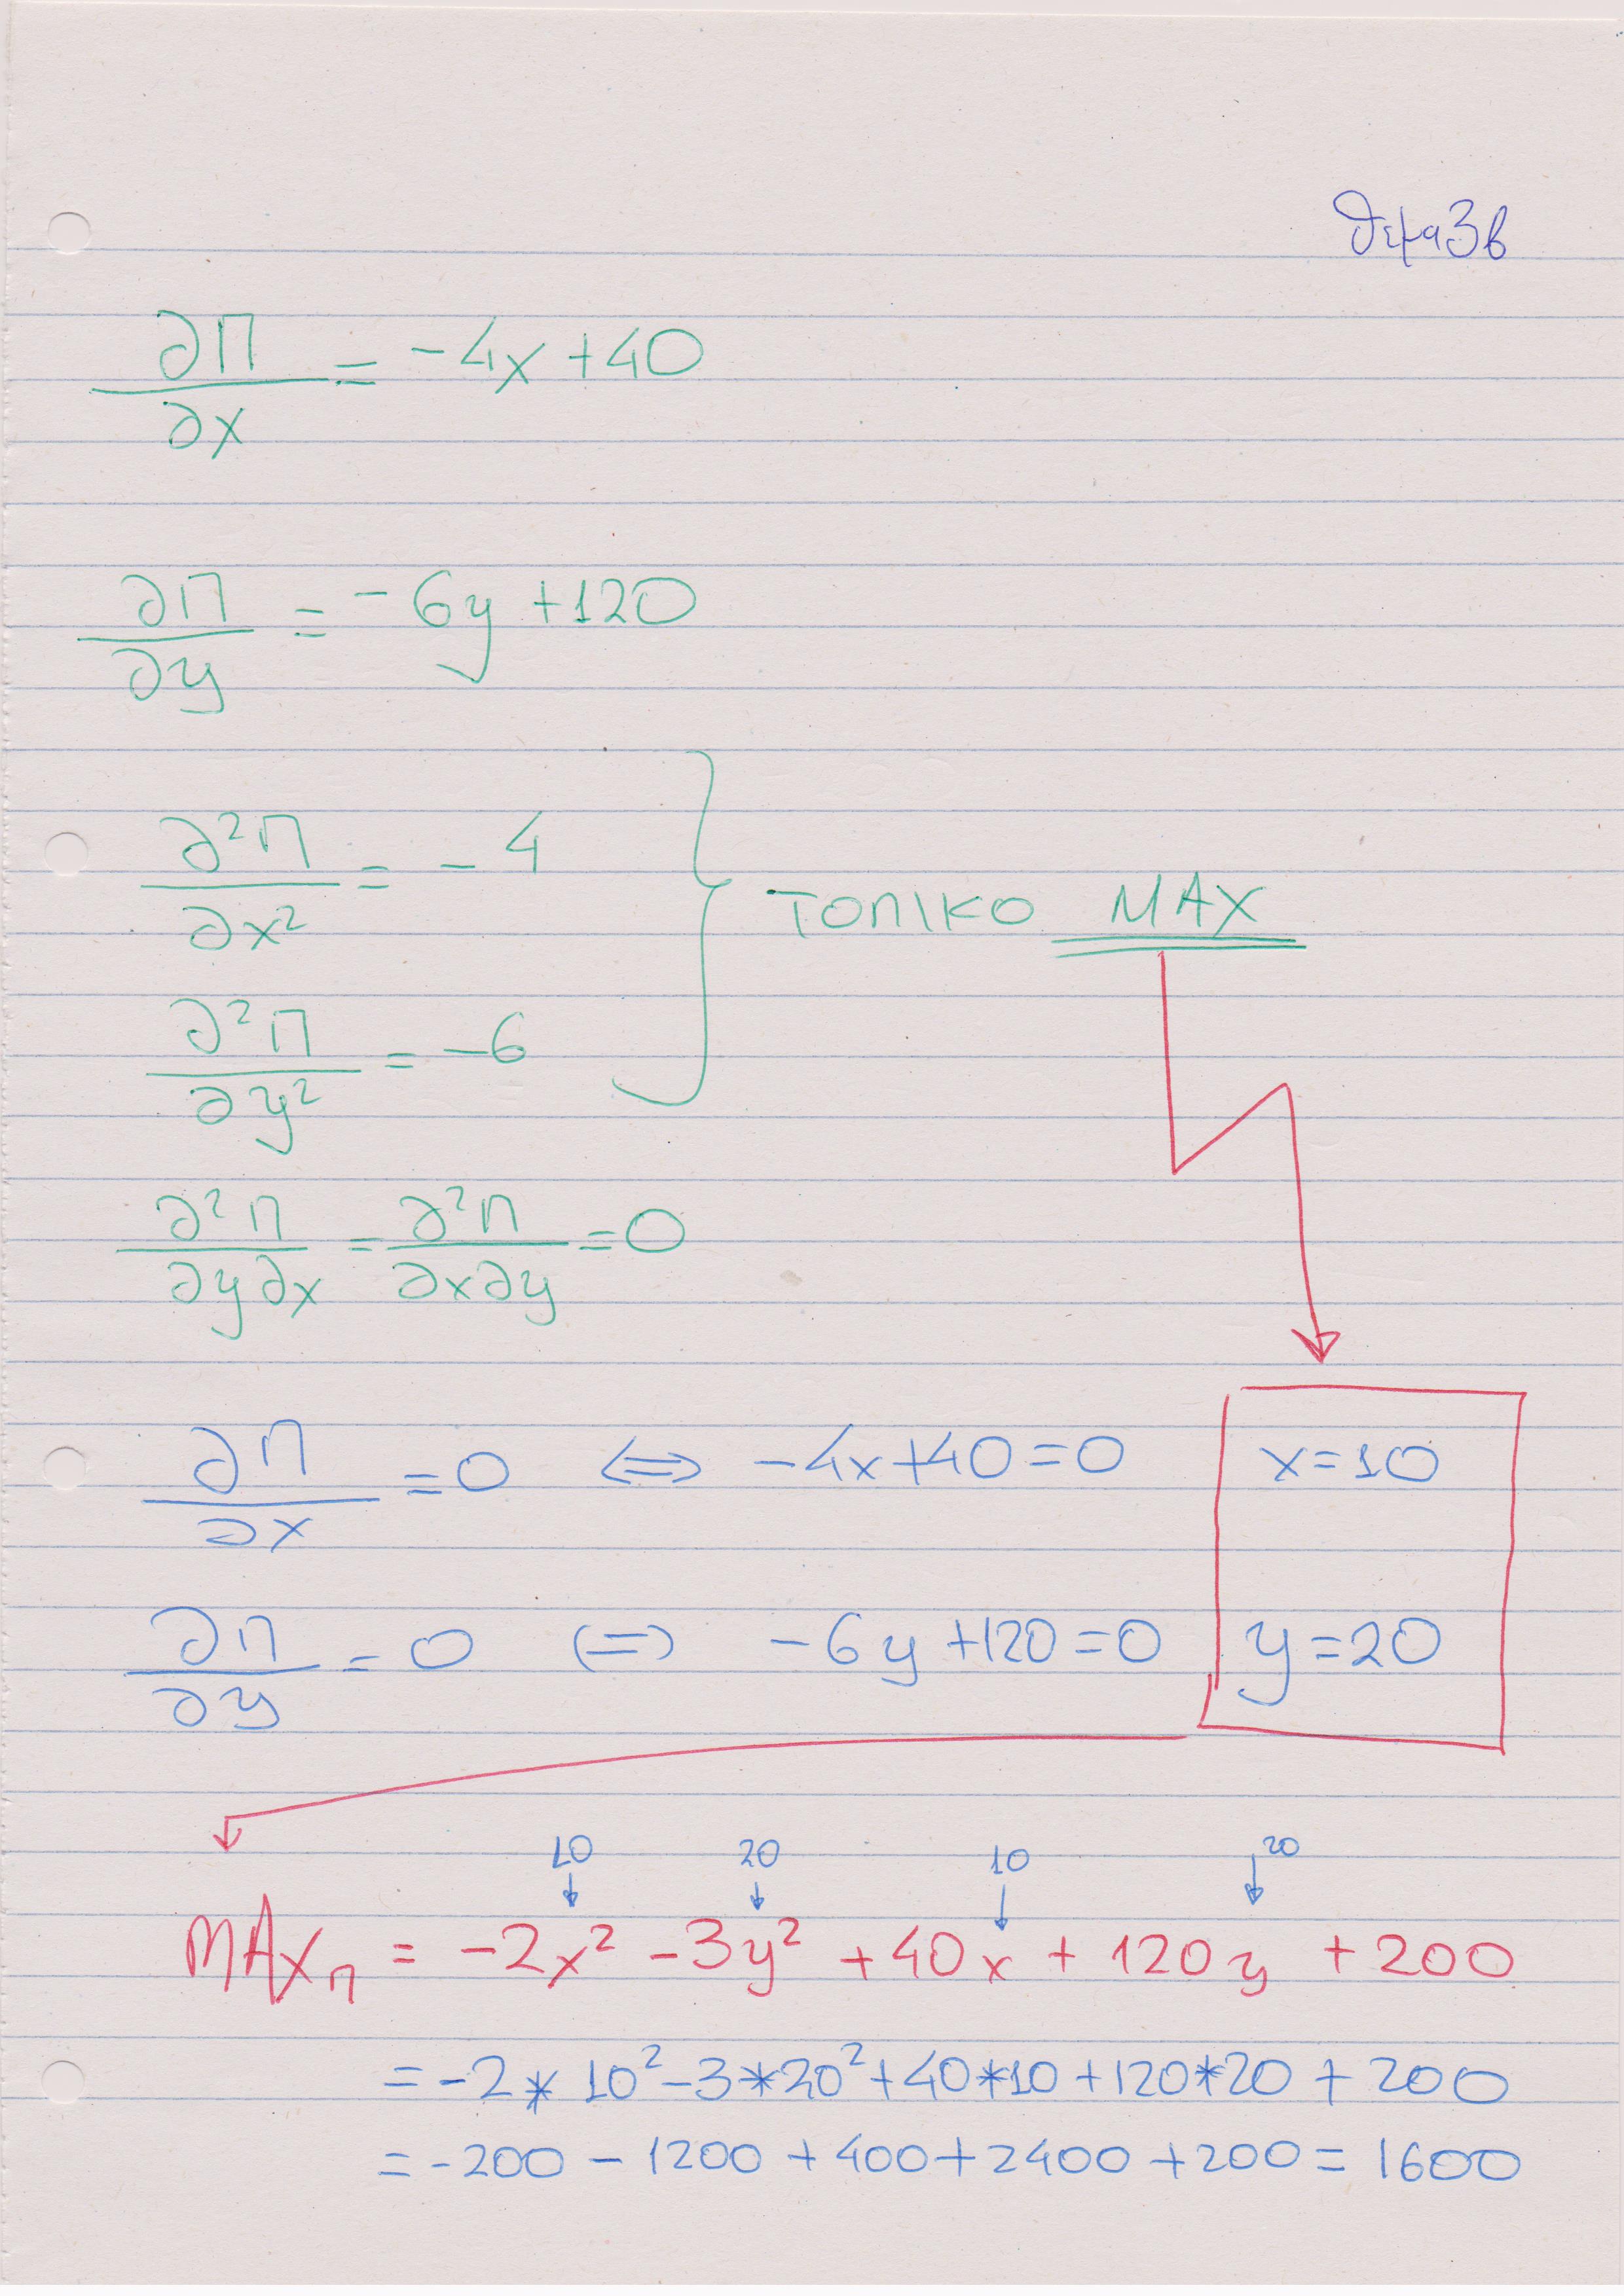 θεμα 3β
∂Π/∂x = -4x +40
∂Π/∂y = -6y +120
∂²Π/∂x² = -4
ΤΟΠΙΚΟ MAX
∂²Π/∂y² = -6
∂²Π/∂y∂x = ∂²Π/∂x∂y = 0
∂Π/∂x = 0 <=> -4x+40=0 x=10
∂Π/∂y = 0 <=> -6y+120=0 y=20
10 20 10 20
MAXπ = -2x² -3y² +40x + 120y +200
= -2 * 10² -3*20² +40*10 +120*20 + 200
= -200 - 1200 + 400 + 2400 + 200 = 1600